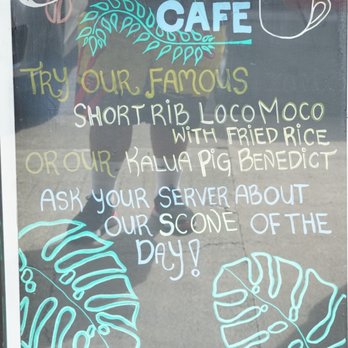 CAFE
TRY OUR FAMOUS
SHORT RIB LOCO MOCO
WITH FRIED RICE
OR OUR KALUA PIG BENEDICT
ASK YOUR SERVER ABOUT
OUR SCONE OF THE
DAY!